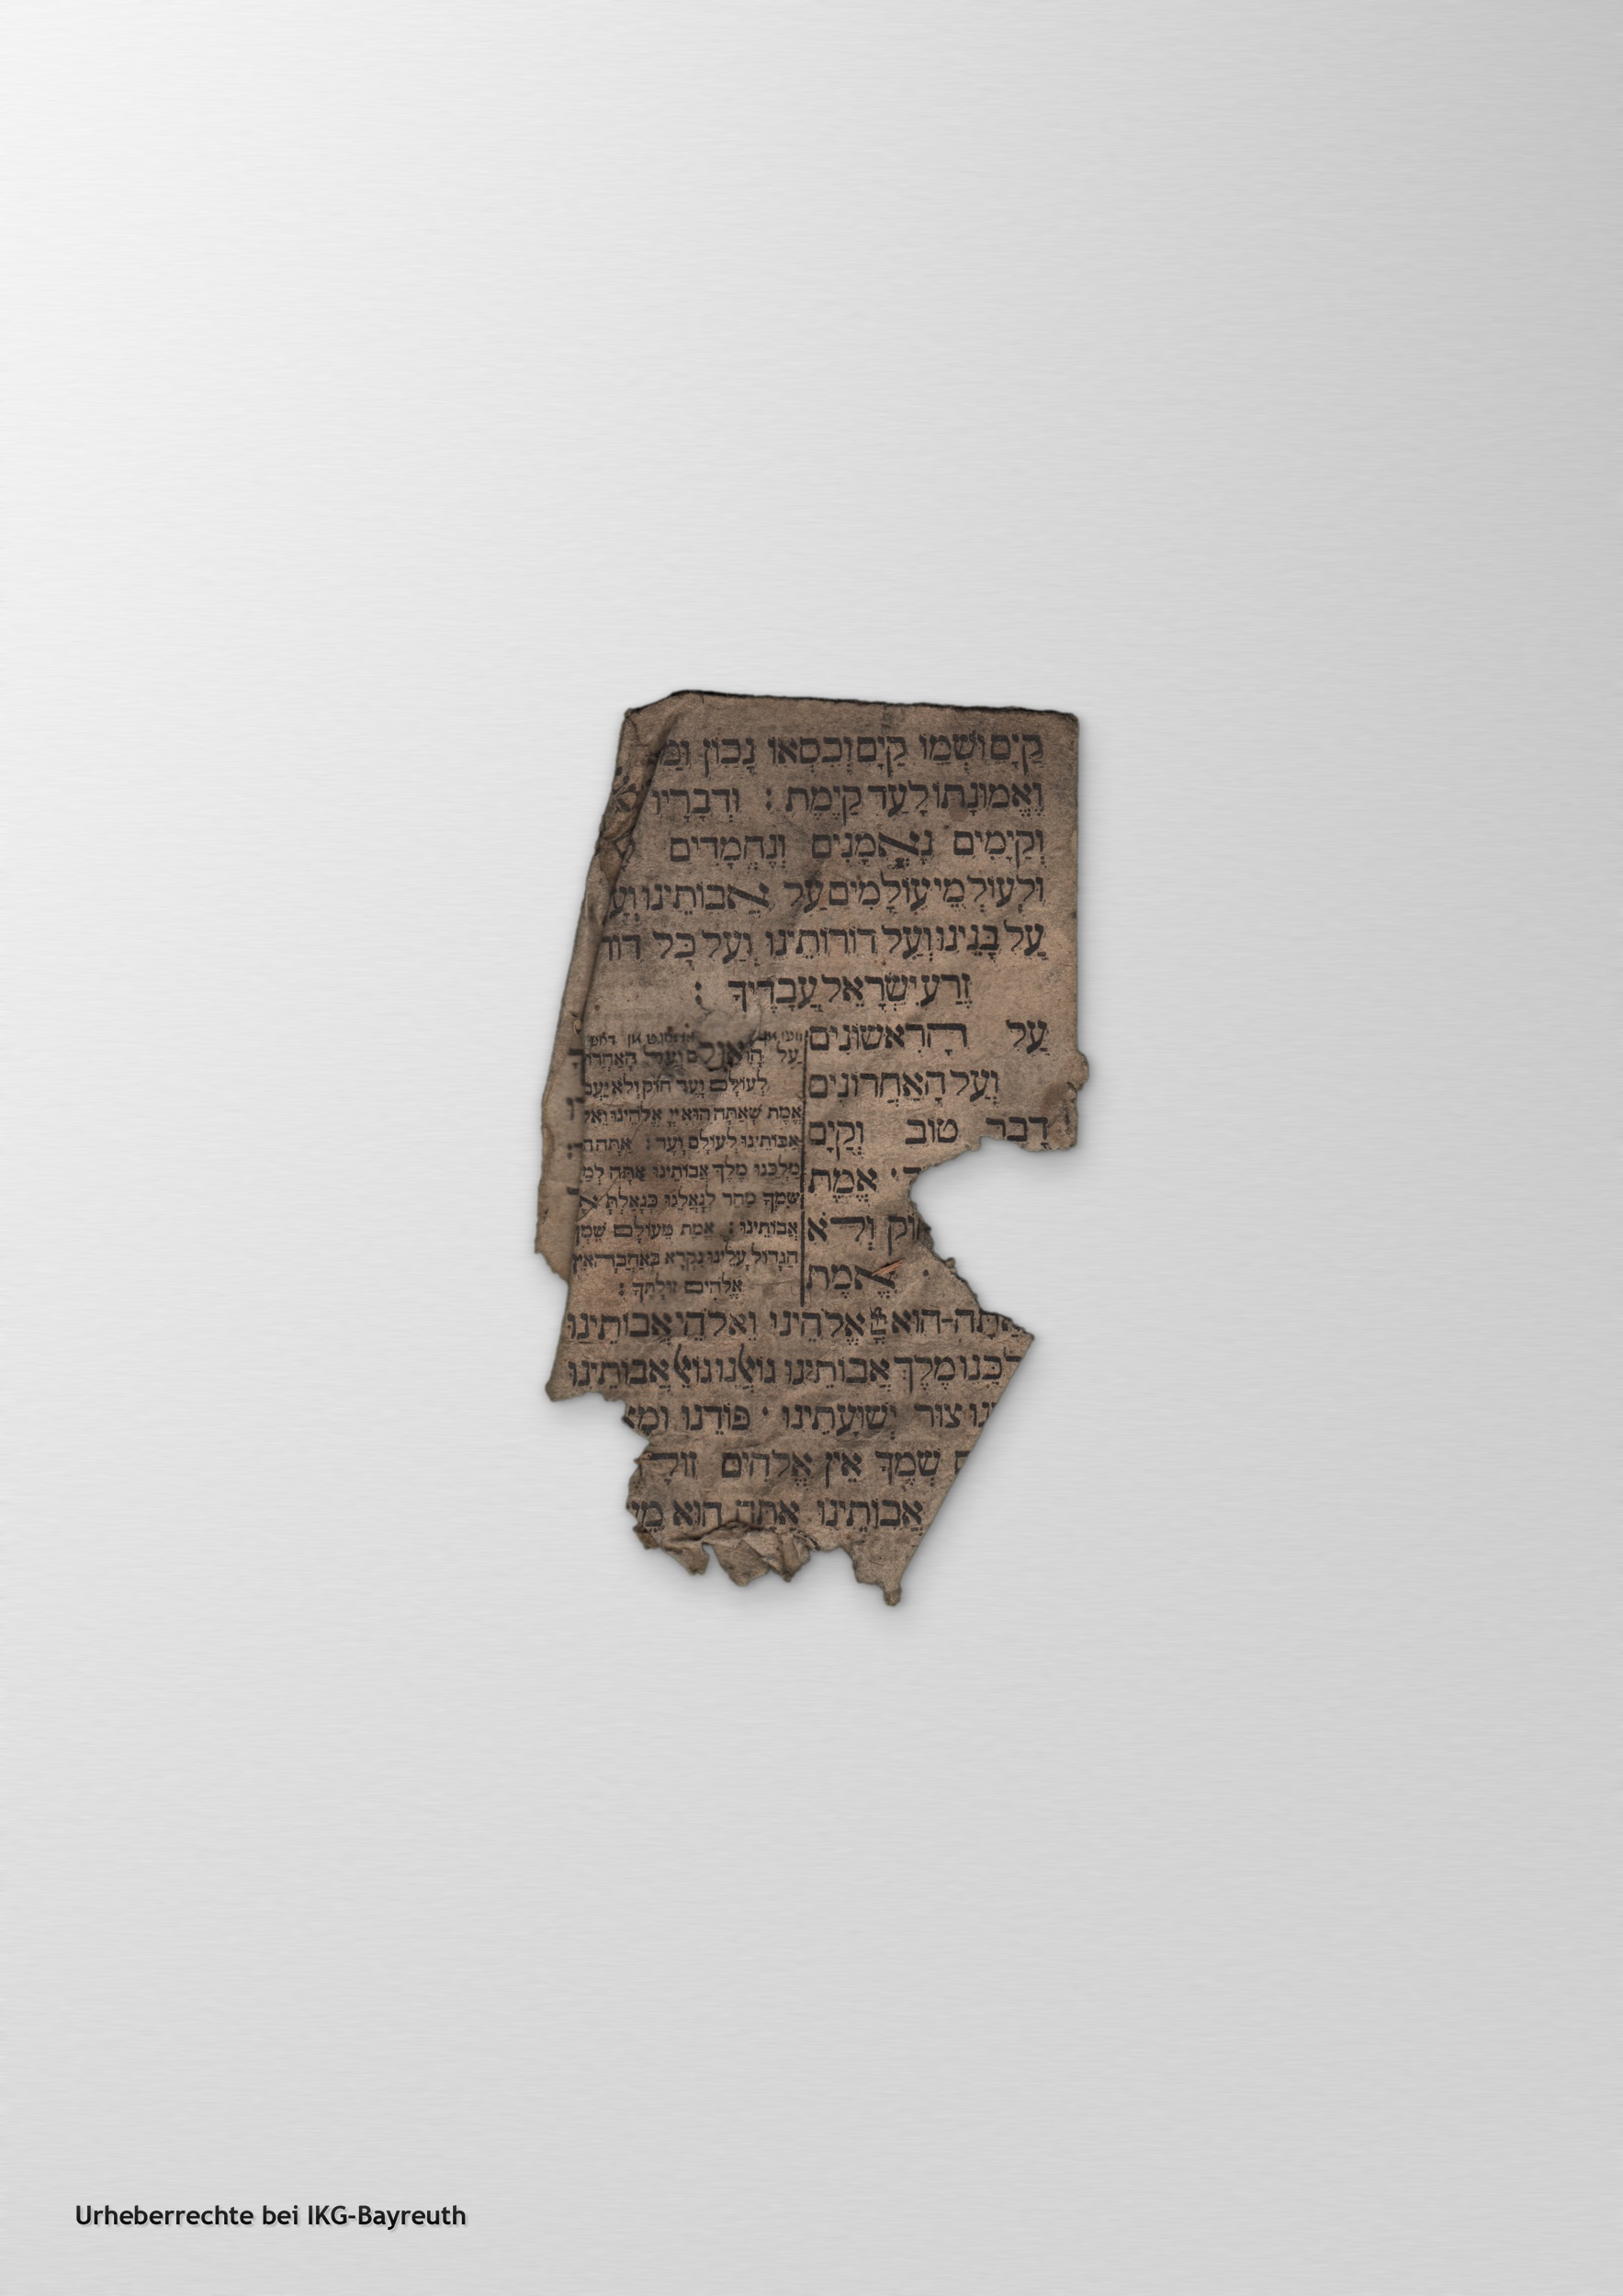 קַיָם וּשְׁמוֹ קַיָם וְכִסְאוֹ נָכוֹן
וֶאֱמוּנָתוֹ לָעַד קַיֶמֶת : וּדְבָרָיו
וְקַיָמִים נֶאֱמָנִים וְנֶחֱמָדִים
וּלְעוֹלְמֵי עוֹלָמִים עַל אֲבוֹתֵינוּ
עַל בָּנֵינוּ וְעַל דוֹרוֹתֵינוּ וְעַל כָּל
זֶרַע יִשְׂרָאֵל עֲבָדֶיךָ :
עַל הָרִאשׁוֹנִים
וְעַל הָאַחֲרוֹנִים
דָבָר טוֹב וְקַיָם
אֱמֶת
וְלֹא
אֱמֶת
עַל
לְעוֹלָם וָעֶד חוֹק וְלֹא
אֱמֶת שָׁאַתָּה הוּא יְיָ אֱלֹהֵינוּ
אֲבוֹתֵינוּ לְעוֹלָם וָעֶד : אַתָּה
מַלְכֵּנוּ מֶלֶךְ אֲבוֹתֵינוּ אַתָּה
שִׁמְךָ מַהֵר לְגָאֳלֵנוּ כְּגָאַלְתָּ
אֲבוֹתֵינוּ : אֱמֶת מֵעוֹלָם
הַגָדוֹל עָלֵינוּ נִקְרָא בְּאַהֲבָה אֵין
אֱלֹהִים זוּלָתֶךָ :
הוּא אֱלֹהֵינוּ וֵאלֹהֵי אֲבוֹתֵינוּ
מֶלֶךְ אֲבוֹתֵינוּ גוֹאֲלֵנוּ גוֹאֵל אֲבוֹתֵינוּ
צוּר יְשׁוּעָתֵינוּ · פּוֹדֵנוּ
שְׁמֶךָ אֵין אֱלֹהִים
אֲבוֹתֵינוּ אַתָּה הוּא
Urheberrechte bei IKG-Bayreuth